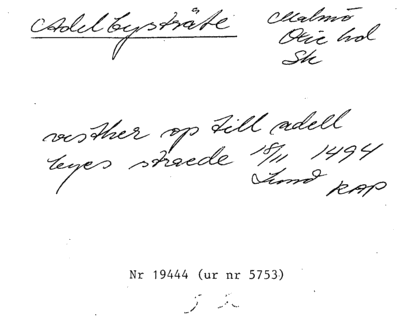 Adelbysträte
Malmö
Oxie hd
Sk
vesther op till adell
byes straede 18/11 1494
Lund RAP
Nr 19444 (ur nr 5753)